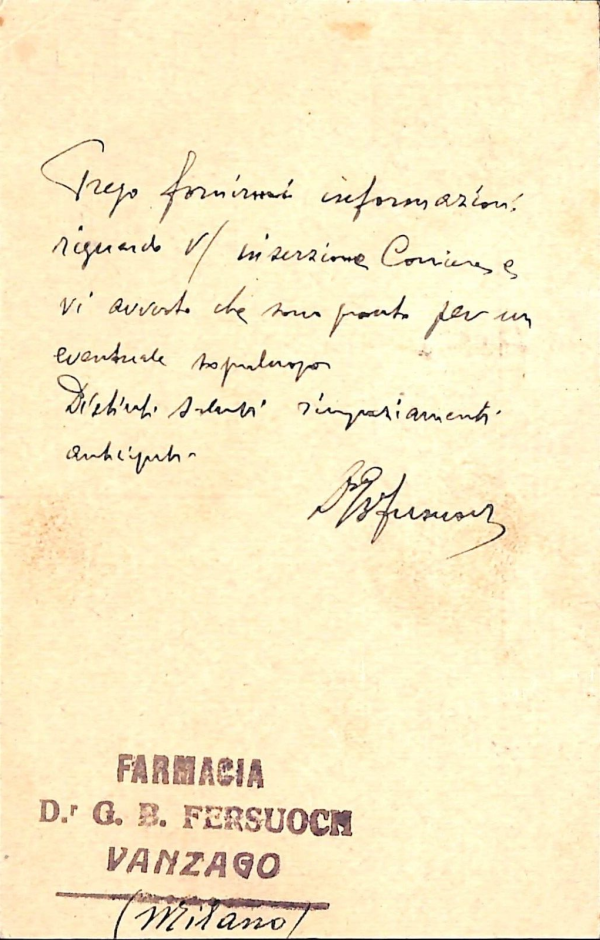 Prego fornirmi informazioni
riguardo V/ inserzione Corriere e
vi avverto che sono pronto per un
eventuale sopraluogo
Distinti saluti ringraziamenti
anticipati
Dr GB Fersuoch
FARMACIA
D.r G. B. FERSUOCH
VANZAGO
(Milano)